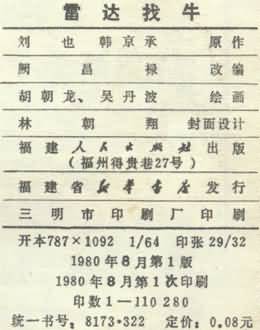 雷达找牛
刘也 韩京承 原作
阙昌禄 改编
胡朝龙、吴丹波 绘画
林朝翔 封面设计
福建人民出版社出版
（福州得贵巷27号）
福建省新华书店发行
三明市印刷厂印刷
开本787×1092 1/64 印张29/32
1980年8月第1版
1980年8月第1次印刷
印数1—110 280
统一书号：8173·322 定价：0.08元